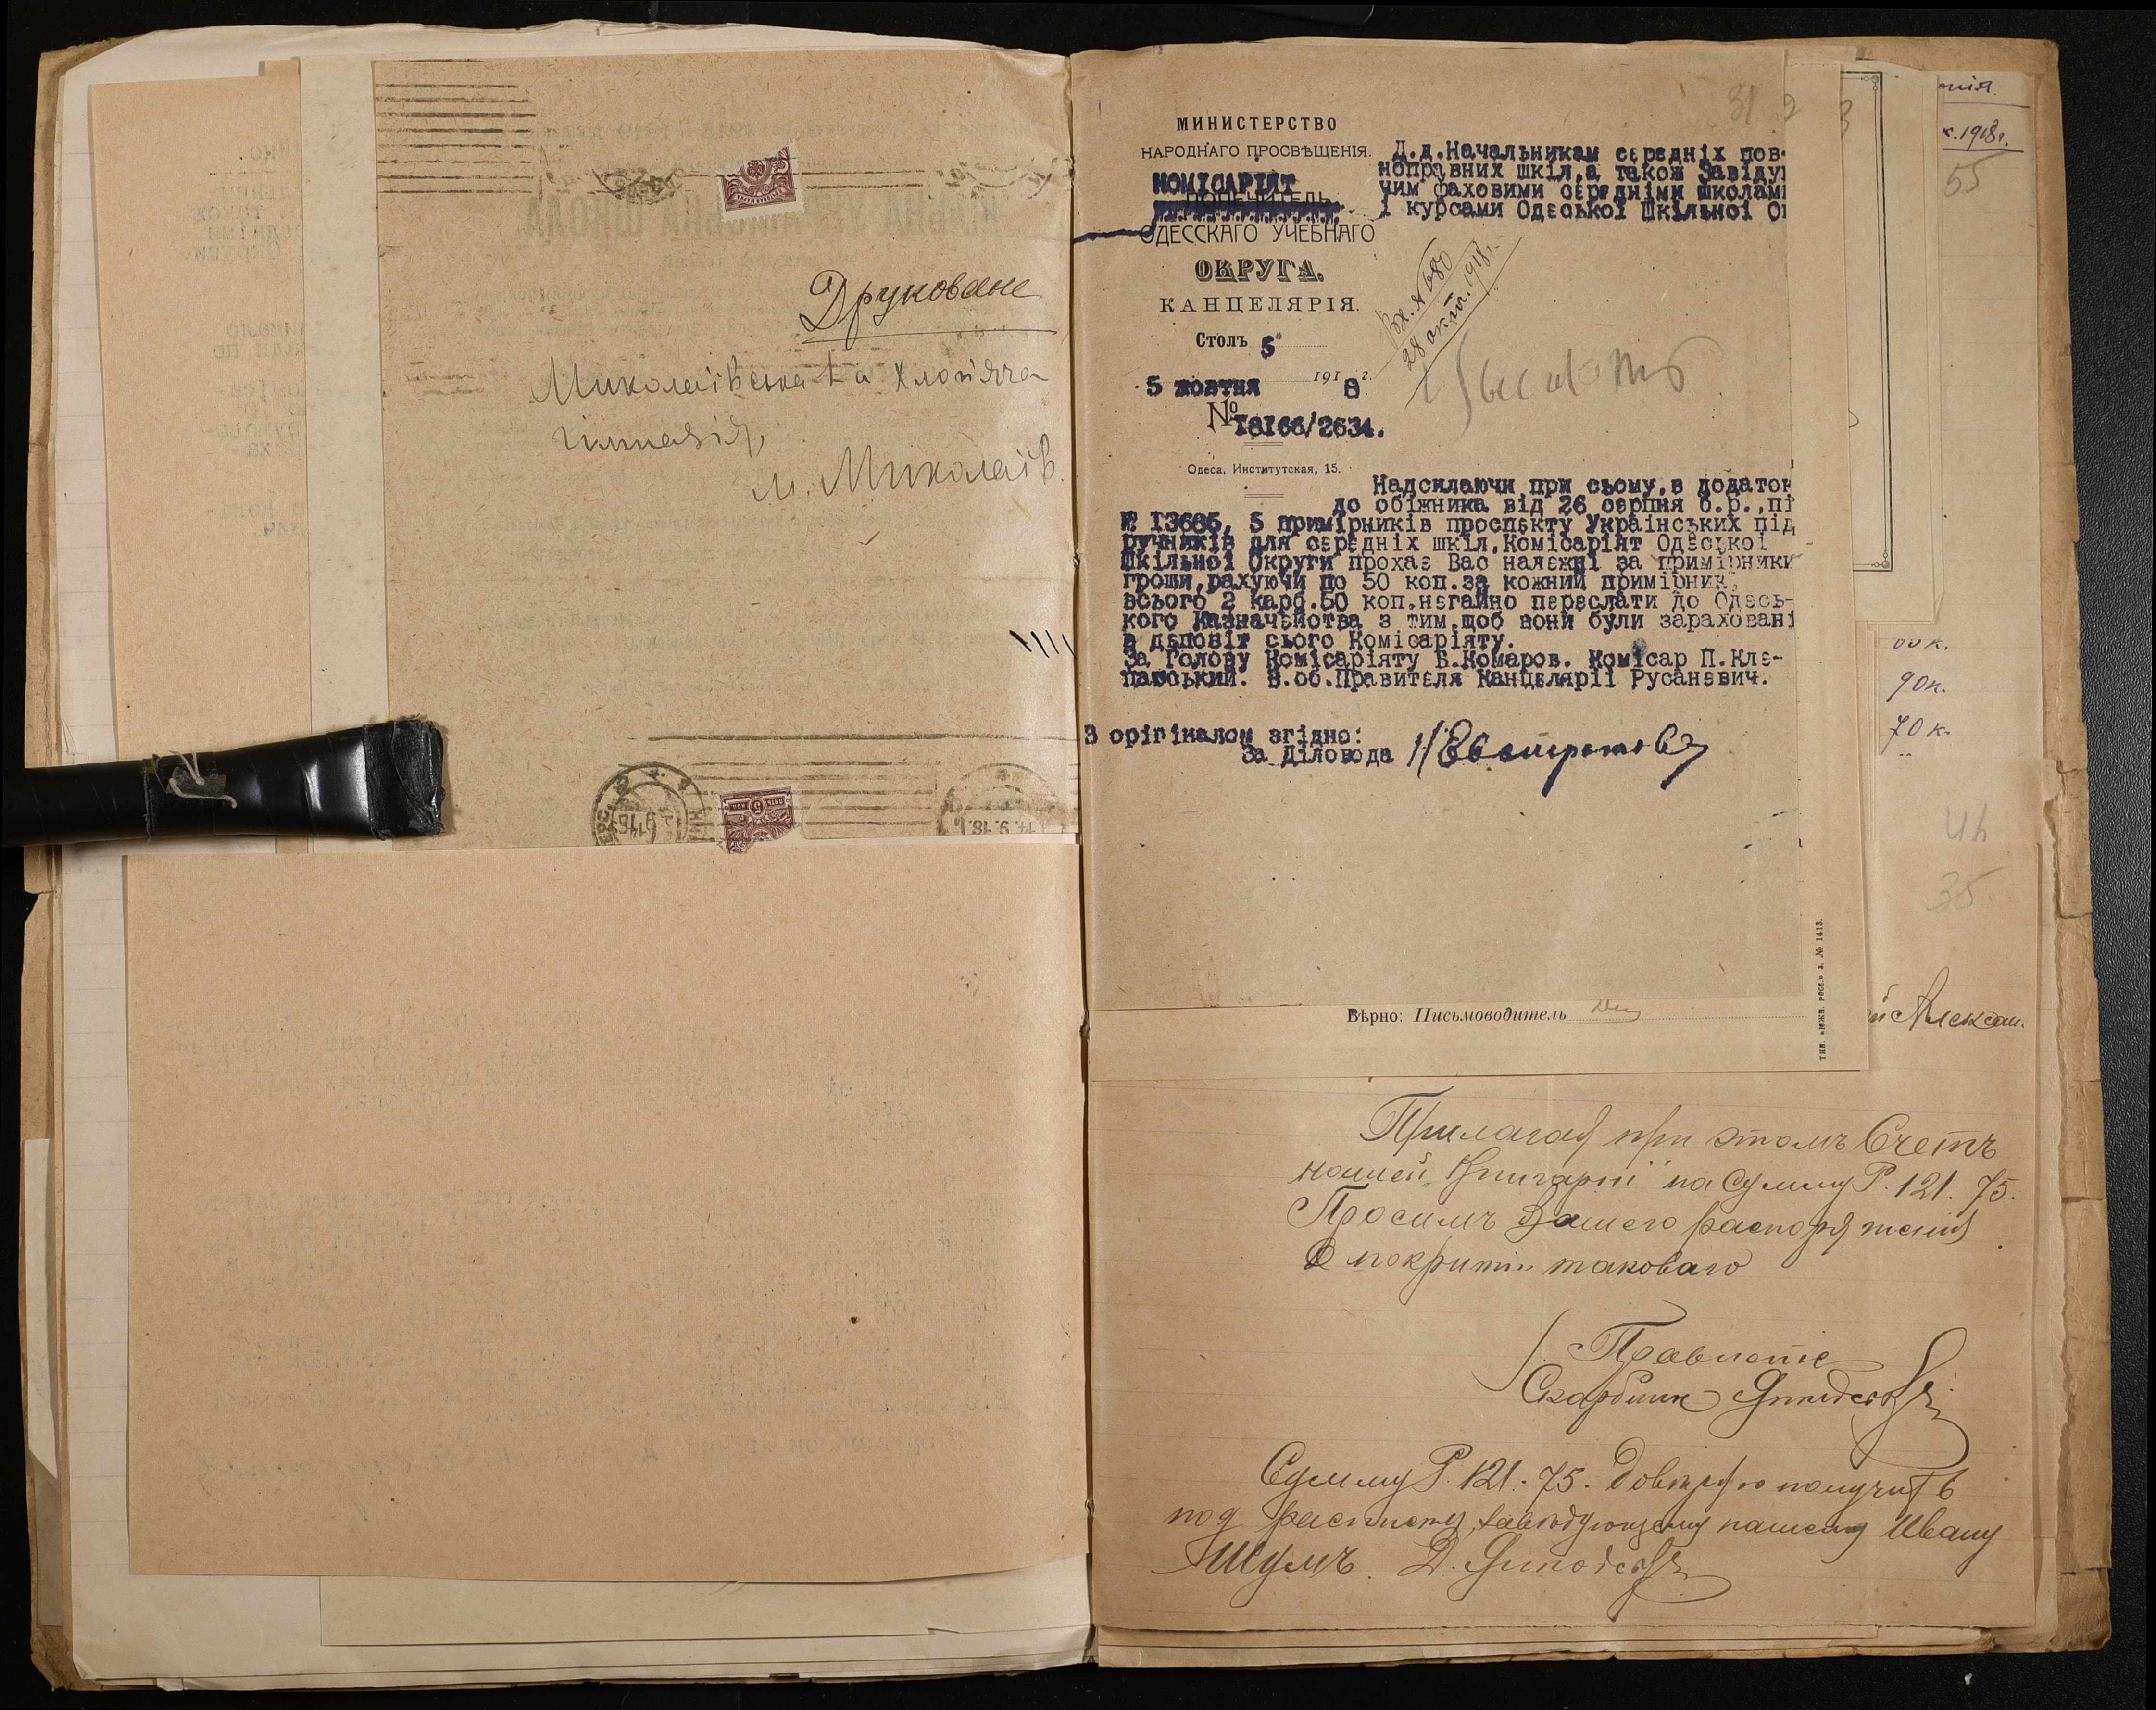 Друковане
Миколаївська 1а Хлопяча
гімназія,
м. Миколаїв.
МИНИСТЕРСТВО
НАРОДНАГО ПРОСВѢЩЕНІЯ.
КОМІСАРІЯТ
ПОПЕЧИТЕЛЬ
ОДЕССКАГО УЧЕБНАГО
ОКРУГА.
КАНЦЕЛЯРІЯ.
Столъ 5
5 жовтня 1918 г.
№ 18166/2634.
Одеса, Институтская, 15.
Д.д.Начальникам середніх пов-
ноправних шкіл,а також Завідую
чим фаховими середніми школами
і курсами Одеської Шкільної Ок
Вх. № 680
28 окт. 918 г.
31
Надсилаючи при сьому,в додаток
до обіжника від 26 серпня б.р.,пі
№ 13685, 5 примірників проспекту Українських під
ручників для середніх шкіл,Комісаріят Одеської
Шкільної Округи прохає Вас належні за примірники
гроши,рахуючи по 50 коп.за кожний примірник,
всього 2 карб.50 коп.негайно переслати до Одесь-
кого Казначейства з тим,щоб вони були зараховані
в депозіт сього Комісаріяту.
За Голову Комісаріяту Б.Комаров. Комісар П.Кле-
пацький. В.об.Правителя Канцелярії Русаневич.
З оріґіналом згідно:
За Діловода
Вѣрно: Письмоводитель
тип. № 1413.
к. 1918 г.
55
90 к.
70 к.
35
й Алексан.
Прилагая при этомъ Счетъ
нашей Книгарні на Сумму Р. 121. 75.
Просимъ Вашего распоряженія
О покритіи таковаго
Правленіе
Скарбник
Сумму Р. 121. 75. Довѣряю получить
под расписку, завѣдующему нашему Ивану
Шумъ. Д.